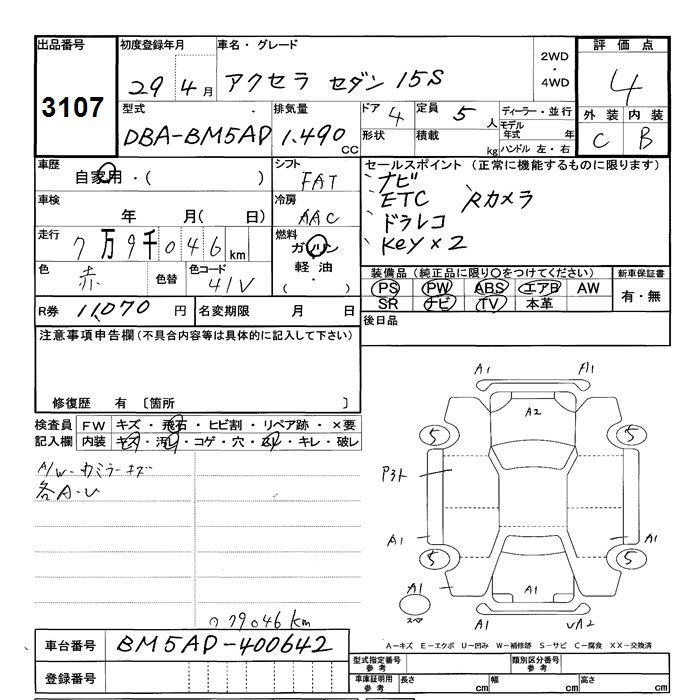 出品番号
3107
初度登録年月
29年4月
車名・グレード
アクセラ セダン 15S
2WD
・
4WD
評価点
4
外装 内装
C B
型式
DBA-BM5AP
排気量
1.490 CC
ドア 4
形状
定員 5 人
積載 kg
ディーラー・並行
モデル年式 年
ハンドル 左・右
車歴
自家用・( )
シフト
FAT
セールスポイント (正常に機能するものに限ります)
ナビ
ETC Rカメラ
ドラレコ
Key×2
車検
年 月( 日)
冷房
AAC
走行
7万9千046km
燃料
ガソリン
軽油
( ・ )
色
赤
色替
色コード
41V
装備品 (純正品に限り○をつけてください)
PS PW ABS エアB AW
SR ナビ TV 本革
新車保証書
有・無
R券 11,070 円
名変期限 月 日
後日品
注意事項申告欄(不具合内容等は具体的に記入して下さい)
修復歴 有 〔箇所
検査員
記入欄
FW キズ・飛石・ヒビ割・リペア跡・×要
内装 キズ・汚レ・コゲ・穴・キレ・破レ
A/W・カミラーキズ
各A・U
79046km
A1 A1
A2
5 5
P3ト
A1 A1
5 5
A1 A1
スペア
A1 UA2
A-キズ E-エクボ U-凹み W-補修跡 S-サビ C-腐食 XX-交換済
車台番号 BM5AP-400642
登録番号
型式指定番号
参考
類別区分番号
参考
車庫証明用
参考
長さ cm 幅 cm 高さ cm